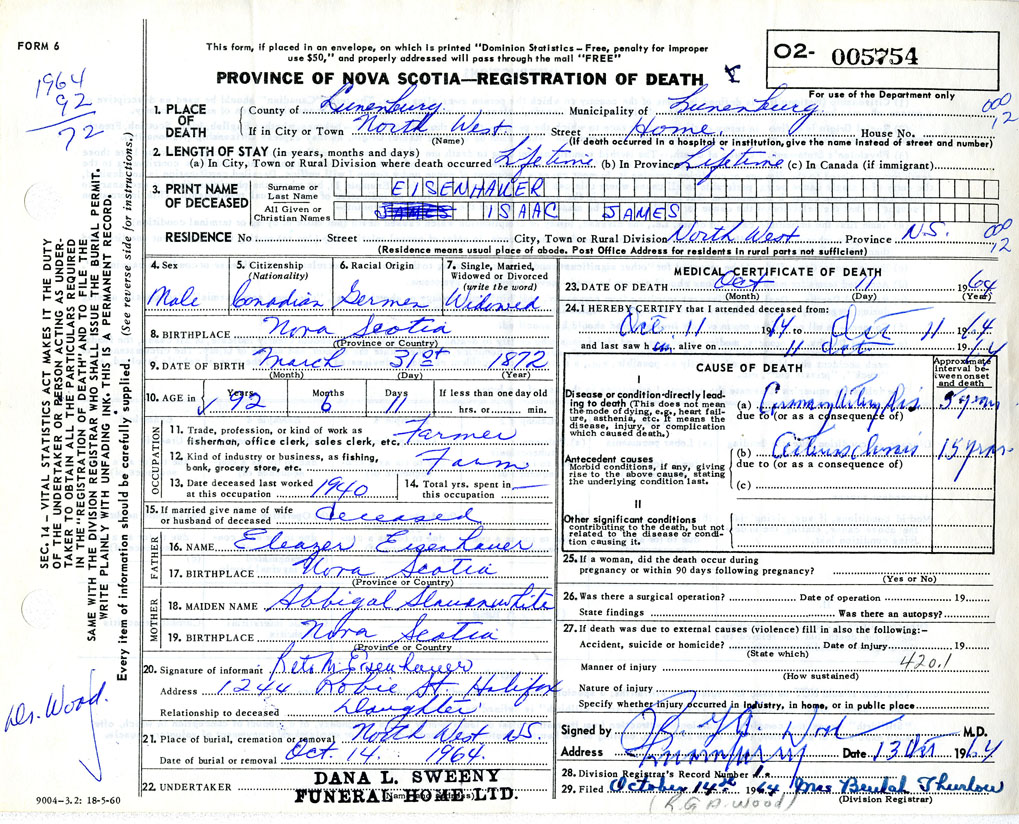 FORM 6
This form, if placed in an envelope, on which is printed "Dominion Statistics – Free, penalty for improper
use $50," and properly addressed will pass through the mail "FREE"
PROVINCE OF NOVA SCOTIA—REGISTRATION OF DEATH
02- 005754
For use of the Department only
1964
92
72
1. PLACE OF DEATH County of Lunenburg Municipality of Lunenburg 000
If in City or Town North West Street Home. House No. 12
(Name) (If death occurred in a hospital or institution, give the name instead of street and number)
2. LENGTH OF STAY (in years, months and days)
(a) In City, Town or Rural Division where death occurred Lifetime (b) In Province Lifetime (c) In Canada (if immigrant)
3. PRINT NAME OF DECEASED Surname or Last Name EISENHAUER
All Given or Christian Names JAMES ISAAC JAMES
RESIDENCE No Street City, Town or Rural Division North West Province N.S. 000
(Residence means usual place of abode. Post Office Address for residents in rural parts not sufficient) 12
4. Sex Male
5. Citizenship (Nationality) Canadian
6. Racial Origin German
7. Single, Married, Widowed or Divorced (write the word) Widowed
8. BIRTHPLACE Nova Scotia
(Province or Country)
9. DATE OF BIRTH March 31st 1872
(Month) (Day) (Year)
10. AGE in Years Months Days If less than one day old
92 6 11 hrs. or min.
OCCUPATION
11. Trade, profession, or kind of work as Farmer
fisherman, office clerk, sales clerk, etc.
12. Kind of industry or business, as fishing, Farm
bank, grocery store, etc.
13. Date deceased last worked at this occupation 1940
14. Total yrs. spent in this occupation —
15. If married give name of wife or husband of deceased deceased
FATHER
16. NAME Eleazer Eisenhauer
17. BIRTHPLACE Nova Scotia
(Province or Country)
MOTHER
18. MAIDEN NAME Abbigal Slauenwhite
19. BIRTHPLACE Nova Scotia
(Province or Country)
20. Signature of informant Reta M. Eisenhauer
Address 1244 Robie St Halifax
Relationship to deceased Daughter
21. Place of burial, cremation or removal North West N.S.
Date of burial or removal Oct. 14. 1964.
22. UNDERTAKER DANA L. SWEENY
FUNERAL HOME LTD.
(Name and address)
9004–3.2: 18-5-60
MEDICAL CERTIFICATE OF DEATH
23. DATE OF DEATH Oct 11 1964
(Month) (Day) (Year)
24. I HEREBY CERTIFY that I attended deceased from:
Oct 11 1964 to Oct 11 1964
and last saw him alive on 11 Oct 1964
CAUSE OF DEATH
Approximate interval between onset and death
I
Disease or condition directly leading to death (This does not mean the mode of dying, e.g., heart failure, asthenia, etc. It means the disease, injury, or complication which caused death.)
(a) 5 years
due to (or as a consequence of)
Antecedent causes
Morbid conditions, if any, giving rise to the above cause, stating the underlying condition last.
(b) 15 years
due to (or as a consequence of)
(c)
II
Other significant conditions
contributing to the death, but not related to the disease or condition causing it.
25. If a woman, did the death occur during
pregnancy or within 90 days following pregnancy?
(Yes or No)
26. Was there a surgical operation? Date of operation 19
State findings Was there an autopsy?
27. If death was due to external causes (violence) fill in also the following:–
Accident, suicide or homicide? Date of injury 19
(State which) 420.1
Manner of injury
(How sustained)
Nature of injury
Specify whether injury occurred in industry, in home, or in public place
Signed by Wood M.D.
Address Date 13 Oct 1964
28. Division Registrar's Record Number 1.
29. Filed October 14th 1964 Mrs Beulah Thurlow
(R.G.A. Wood) (Division Registrar)
SEC. 14 – VITAL STATISTICS ACT MAKES IT THE DUTY
OF THE UNDERTAKER OR PERSON ACTING AS UNDER-
TAKER TO OBTAIN ALL THE PARTICULARS REQUIRED
IN THE "REGISTRATION OF DEATH" AND TO FILE THE
SAME WITH THE DIVISION REGISTRAR WHO SHALL ISSUE THE BURIAL PERMIT.
WRITE PLAINLY WITH UNFADING INK. THIS IS A PERMANENT RECORD.
Every item of information should be carefully supplied. (See reverse side for instructions.)
Dr. Wood.